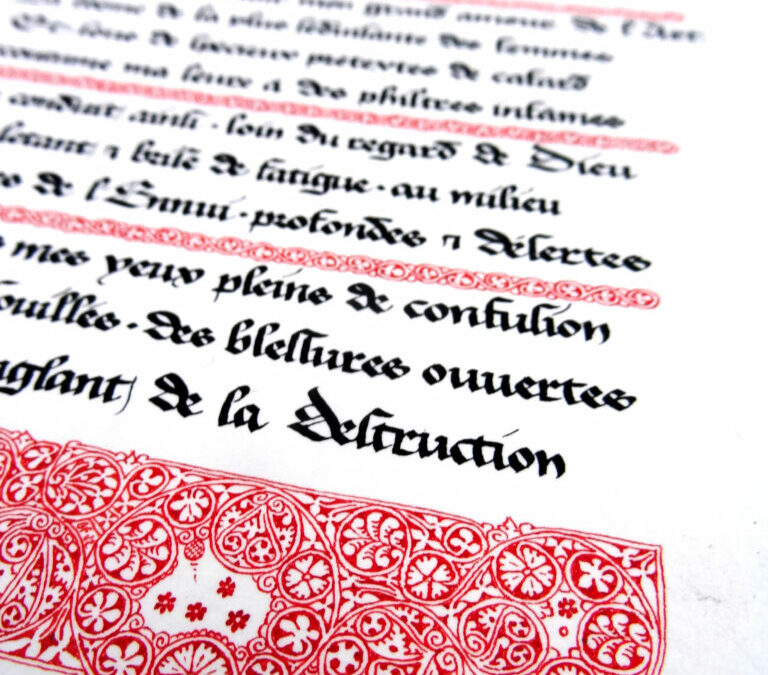 mon grand amour de l'Art
forme de la plus ſéduiſante des femmes
Et ſous de ſpécieux prétextes de cafard
ma levre a des philtres infames
conduit ainſi · loin du regard de Dieu
letant ⁊ briſé de fatigue · au milieu
de l'Ennui · profondes ⁊ déſertes
mes yeux pleins de confuſion
ouillés · des bleſſures ouvertes
glant de la deſtruction